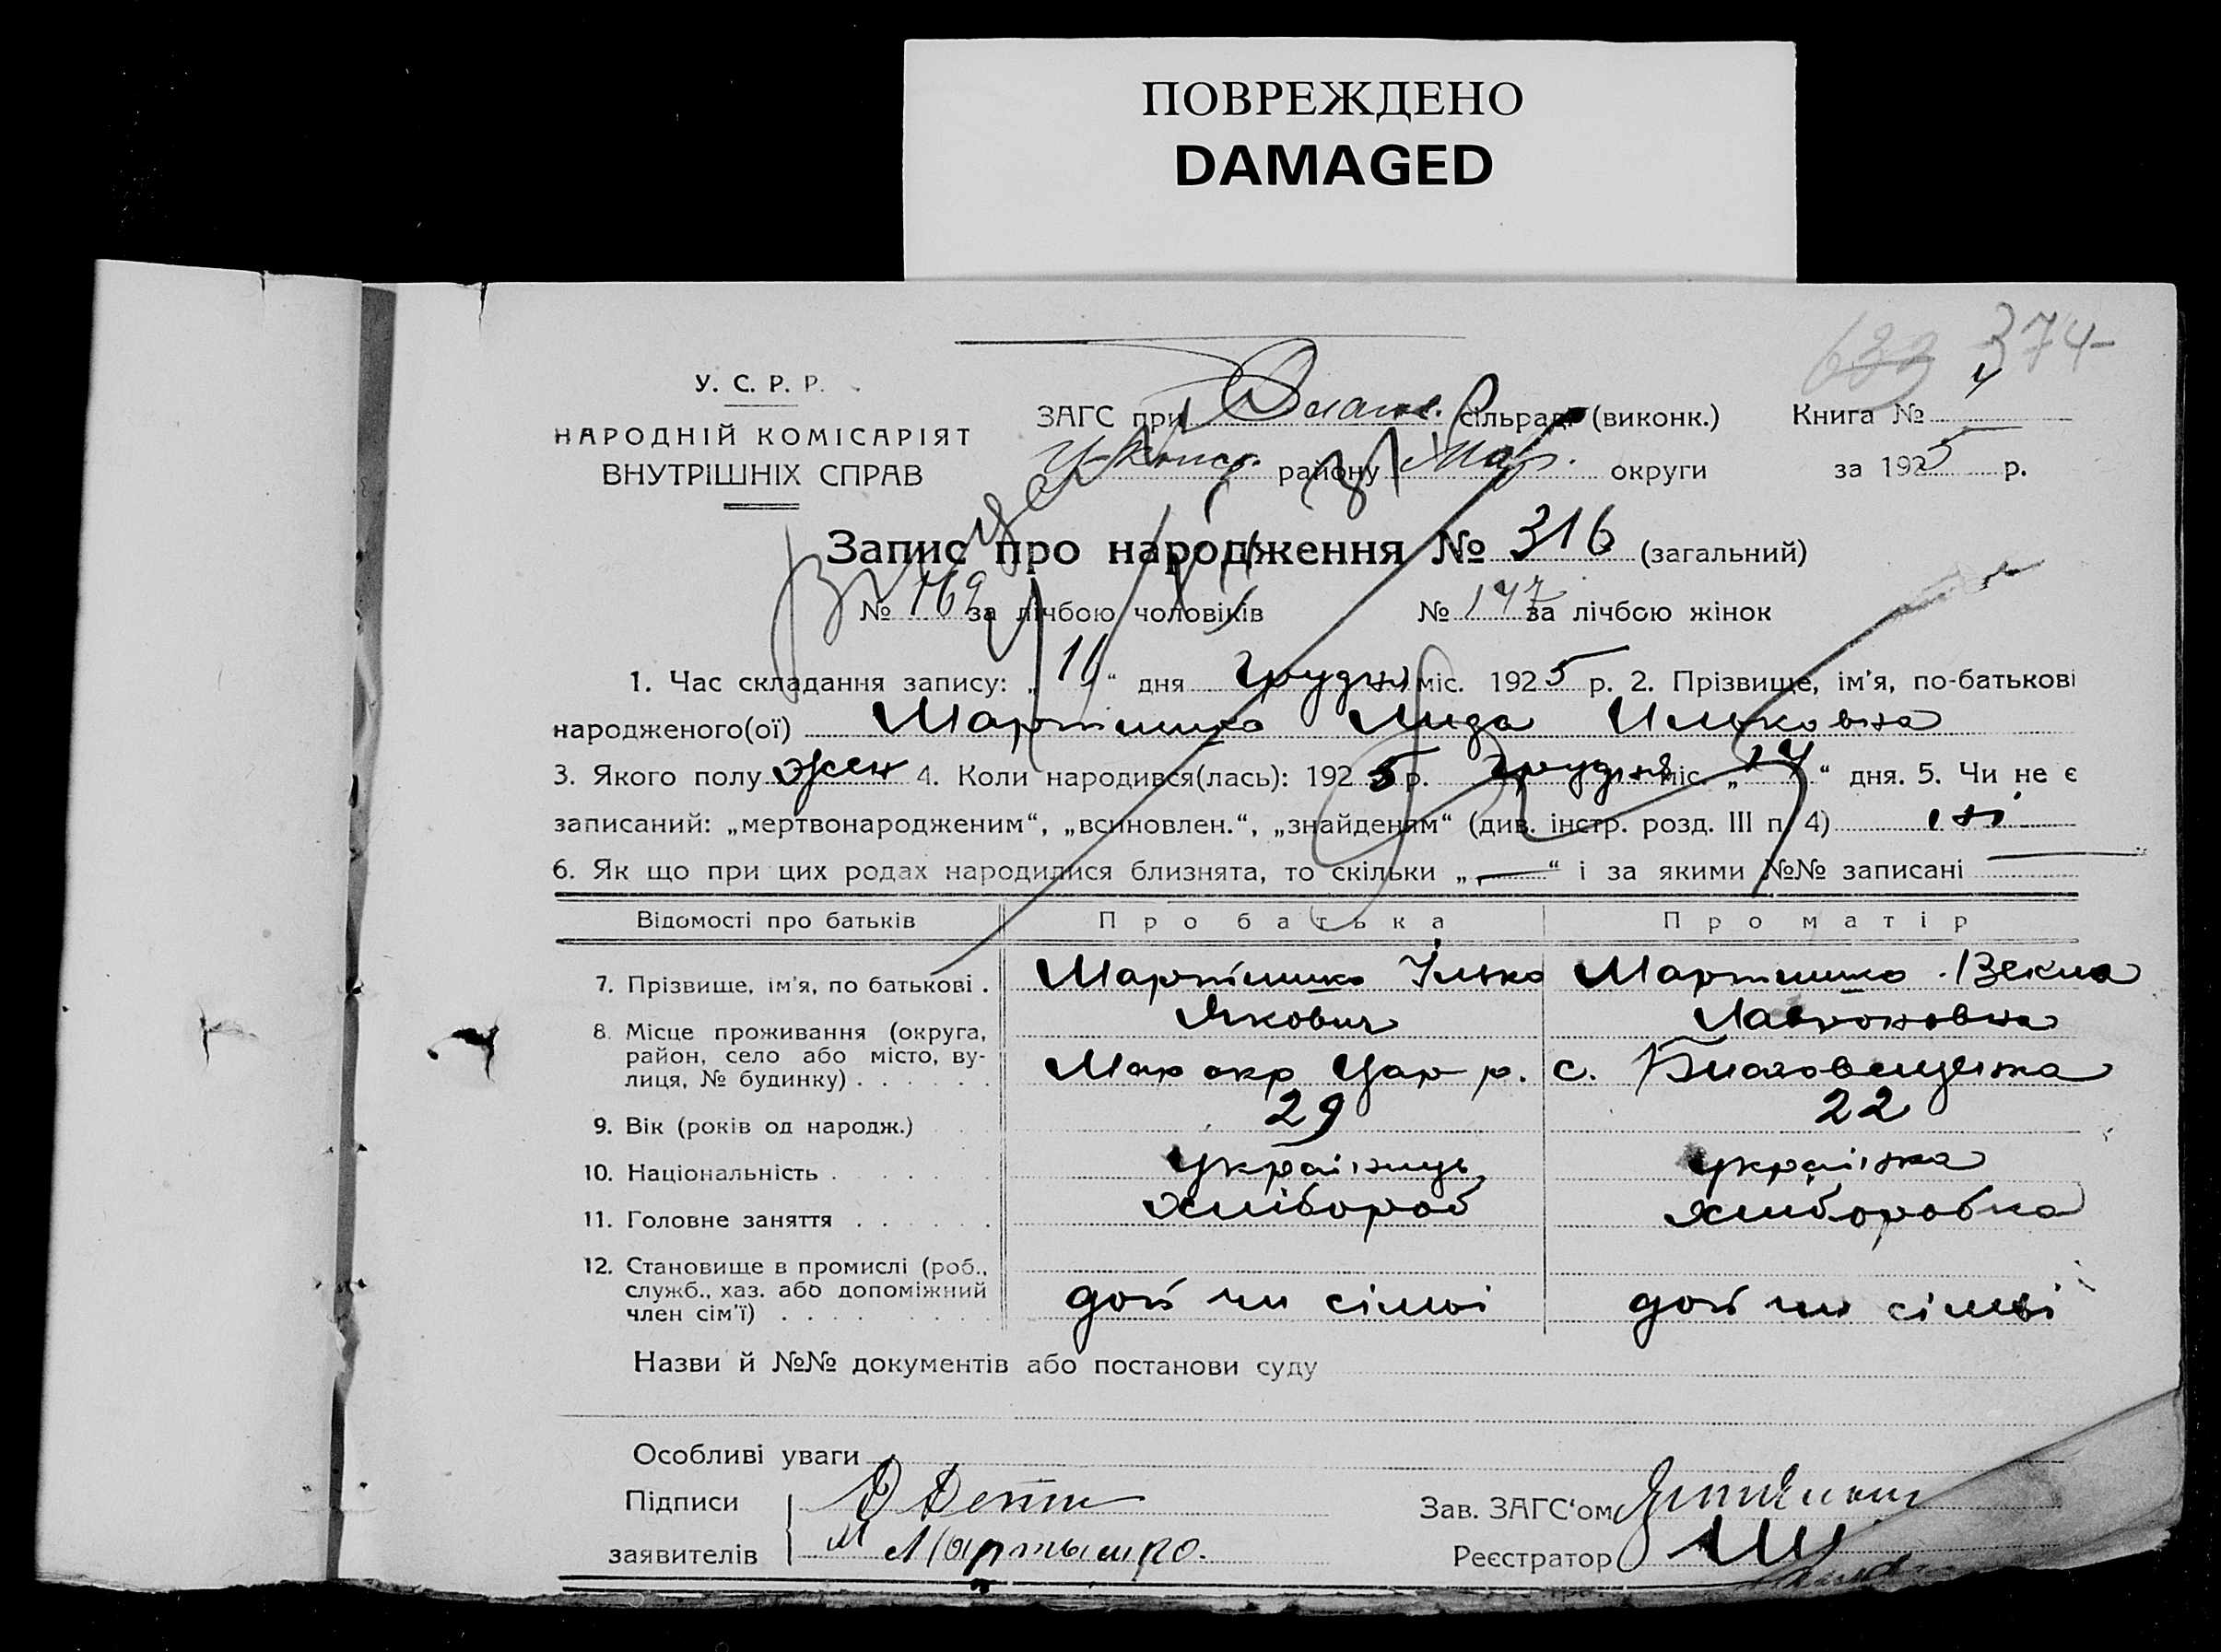 ПОВРЕЖДЕНО
DAMAGED
374
У. С. Р. Р.
НАРОДНІЙ КОМІСАРІЯТ
ВНУТРІШНІХ СПРАВ
ЗАГС при сільраді (виконк.) Книга №
району Мар. округи за 1925 р.
Запис про народження № 316 (загальний)
№ 169 за лічбою чоловіків № 147 за лічбою жінок
1. Час складання запису: „16“ дня грудня міс. 1925 р. 2. Прізвище, ім'я, по-батькові
народженого(ої) Мартишко Лида Ильковна
3. Якого полу жен 4. Коли народився(лась): 1925 р. грудня міс. „14“ дня. 5. Чи не є
записаний: „мертвонародженим“, „всиновлен.“, „знайденям“ (див. інстр. розд. III п. 4) ні
6. Як що при цих родах народилися близнята, то скільки „—“ і за якими №№ записані —
Відомості про батьків Про батька Про матір
7. Прізвище, ім'я, по батькові . Мартішко Ілько Мартишко Векла
Якович
8. Місце проживання (округа,
район, село або місто, ву-
лиця, № будинку) . . . . . . Мар окр Цар р. с. Благовещенка
9. Вік (років од народж.) 29 22
10. Національність . . . . . . українець українка
11. Головне заняття . . . . . . хлібороб хліборобка
12. Становище в промислі (роб.,
служб., хаз. або допоміжний
член сім'ї) . . . . . . . . доп чл сімьі доп чл сімьі
Назви й №№ документів або постанови суду
Особливі уваги
Підписи Зав. ЗАГС'ом
заявителів Мартышко. Реєстратор